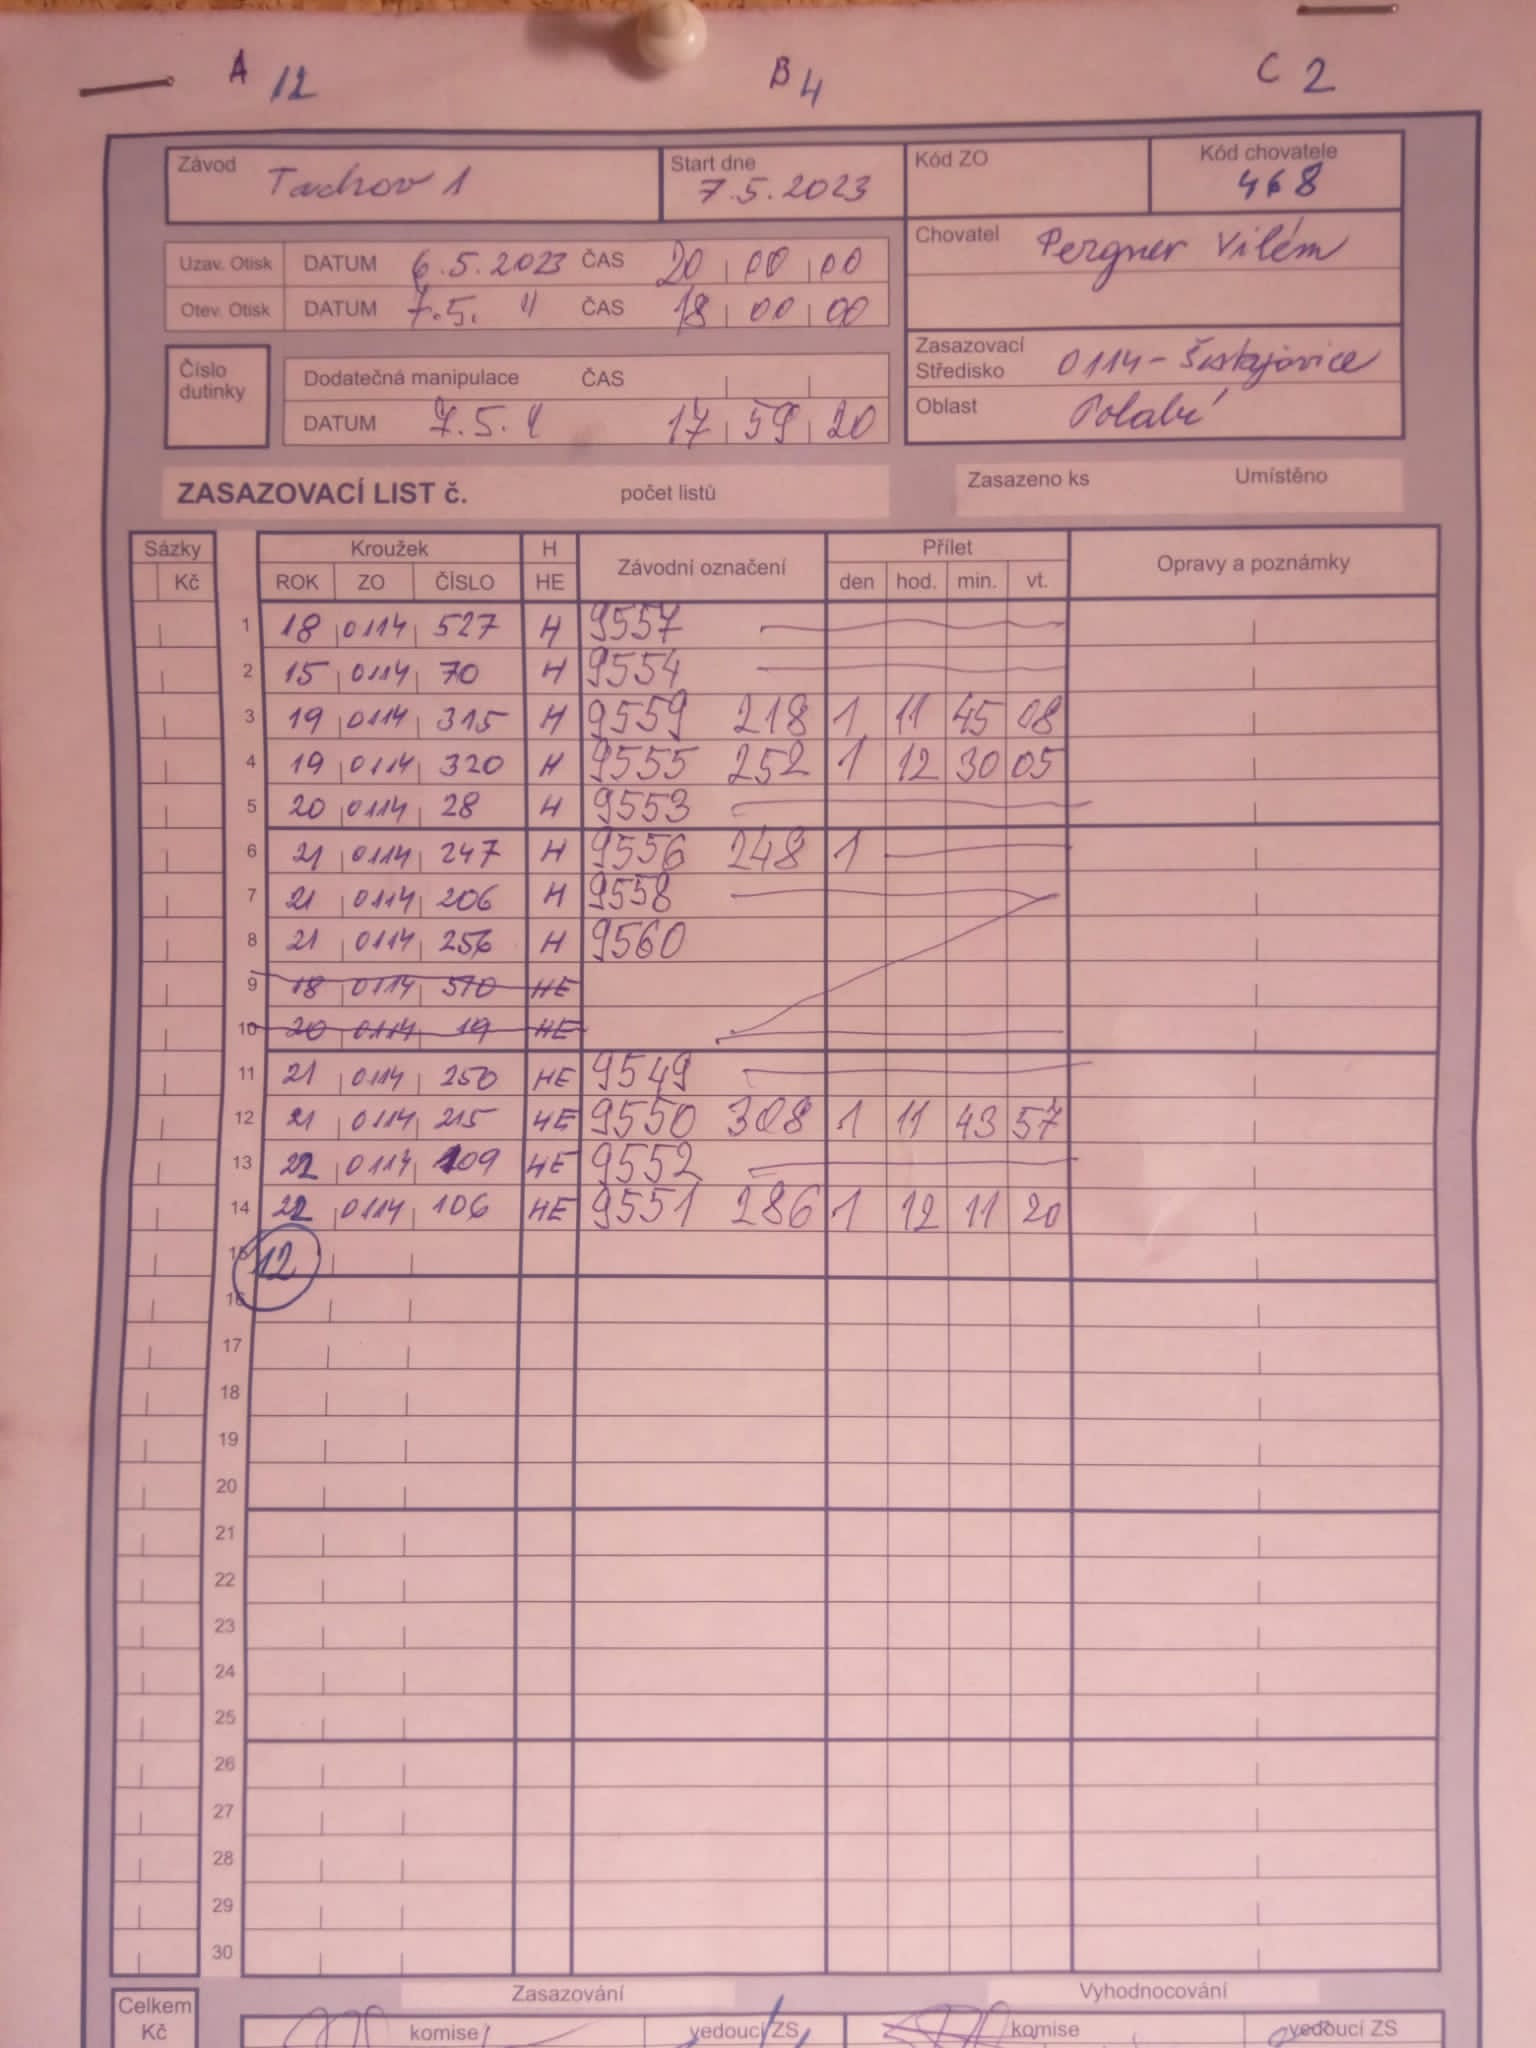 A 12 B 4 C 2
Závod Tachov 1 Start dne 7.5.2023 Kód ZO Kód chovatele 468
Chovatel Pergner Vilém
Uzav. Otisk DATUM 6.5.2023 ČAS 20 00 00
Otev. Otisk DATUM 7.5. " ČAS 18 00 00
Zasazovací Středisko 0114-
Číslo dutinky
Dodatečná manipulace ČAS
DATUM 7.5. 17 59 20
Oblast Polabí
ZASAZOVACÍ LIST č. počet listů Zasazeno ks Umístěno
Sázky Kroužek H Závodní označení Přílet Opravy a poznámky
Kč ROK ZO ČÍSLO HE den hod. min. vt.
1 18 0114 527 H 9557
2 15 0114 70 H 9554
3 19 0114 315 H 9559 218 1 11 45 08
4 19 0114 320 H 9555 252 1 12 30 05
5 20 0114 28 H 9553
6 21 0114 247 H 9556 248 1
7 21 0114 206 H 9558
8 21 0114 256 H 9560
9 18 0114 570 HE
10 20 0114 19 HE
11 21 0114 250 HE 9549
12 21 0114 215 HE 9550 308 1 11 43 57
13 22 0114 109 HE 9552
14 22 0114 106 HE 9551 286 1 12 11 20
15 12
16
17
18
19
20
21
22
23
24
25
26
27
28
29
30
Celkem Kč Zasazování Vyhodnocování
komise vedoucí ZS komise vedoucí ZS